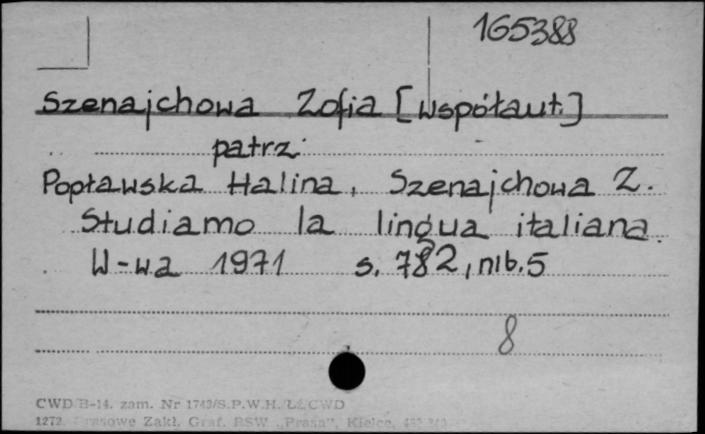 165388
Szenajchowa Zofia [współaut.]
patrz:
Popławska Halina, Szenajchowa Z.
Studiamo la lingua italiana.
W-wa 1971 s. 782, nlb. 5
8
CWD/B-14. zam. Nr 1743/S.P.W.H./ŁŻ/CWD
1272. Prasowe Zakł. Graf. RSW „Prasa", Kielce,